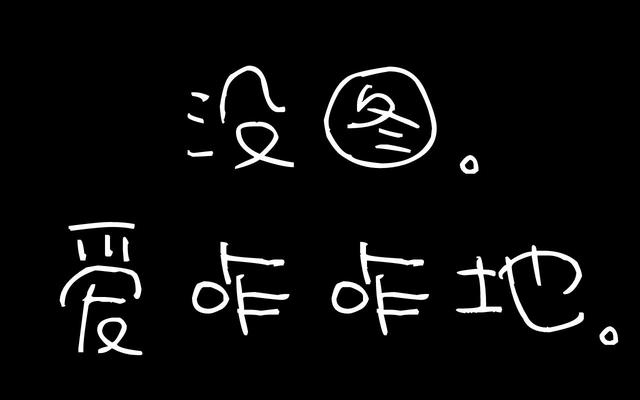 没图。
爱咋咋地。